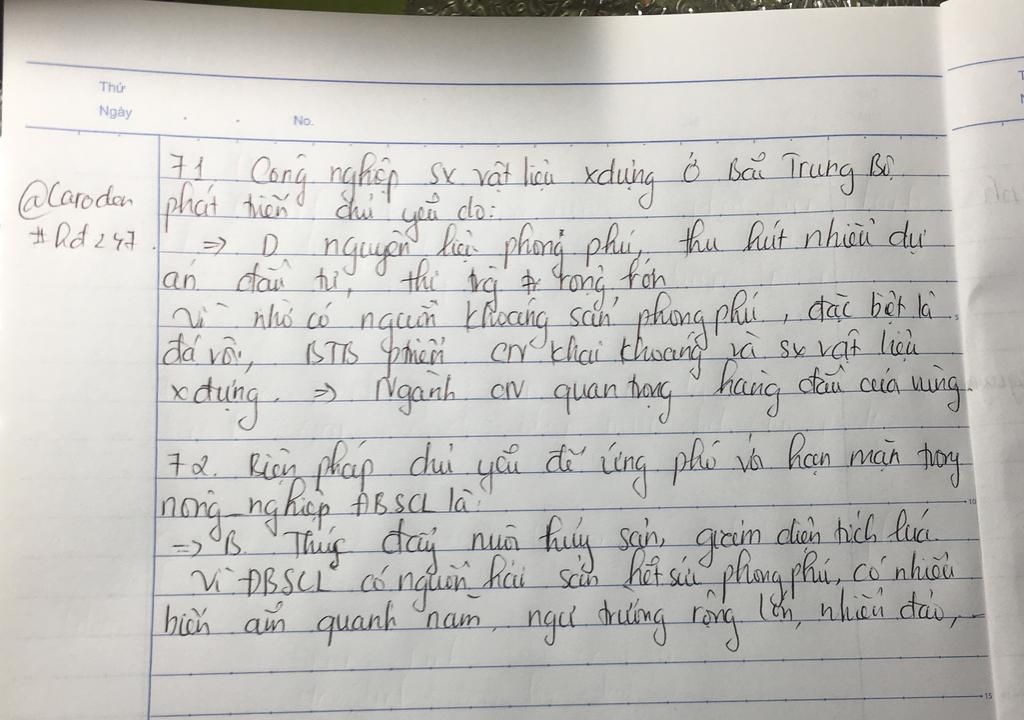 Thứ
Ngày
No.
71. Công nghiệp sx vật liệu xdựng ở Bắc Trung Bộ
@Caroden
phát triển chủ yếu do:
#Rd247
=> D nguyên liệu phong phú, thu hút nhiều dự
án đầu tư, thị trg rộng lớn
Vì nhờ có nguồn khoáng sản phong phú, đặc biệt là
đá vôi, BTB phtriển CN khai khoáng và sx vật liệu
xdựng. => Ngành CN quan trọng hàng đầu của vùng.
72. Biện pháp chủ yếu để ứng phó với hạn mặn trong
nông nghiệp ĐBSCL là:
=> B. Thúc đẩy nuôi thủy sản, giảm diện tích lúa.
Vì ĐBSCL có nguồn hải sản hết sức phong phú, có nhiều
biển ấm quanh năm, ngư trường rộng lớn, nhiều đảo,
10
15